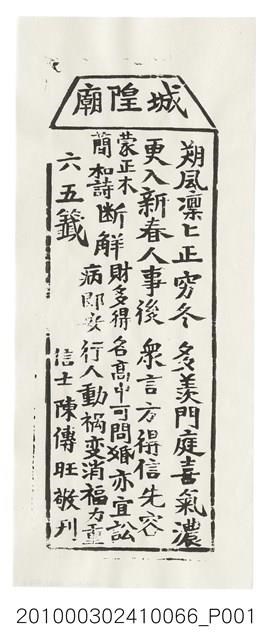 城隍廟
朔風凜〻正穷冬 多羨門庭喜氣濃
更入新春人事後 衆言方得信先容
蒙正木
簡和詩
断解
財多得 名高中 可問婚 亦宜訟
病即安 行人動 禍变消 福力重
六五籤
信士陳傳旺敬刋
201000302410066_P001